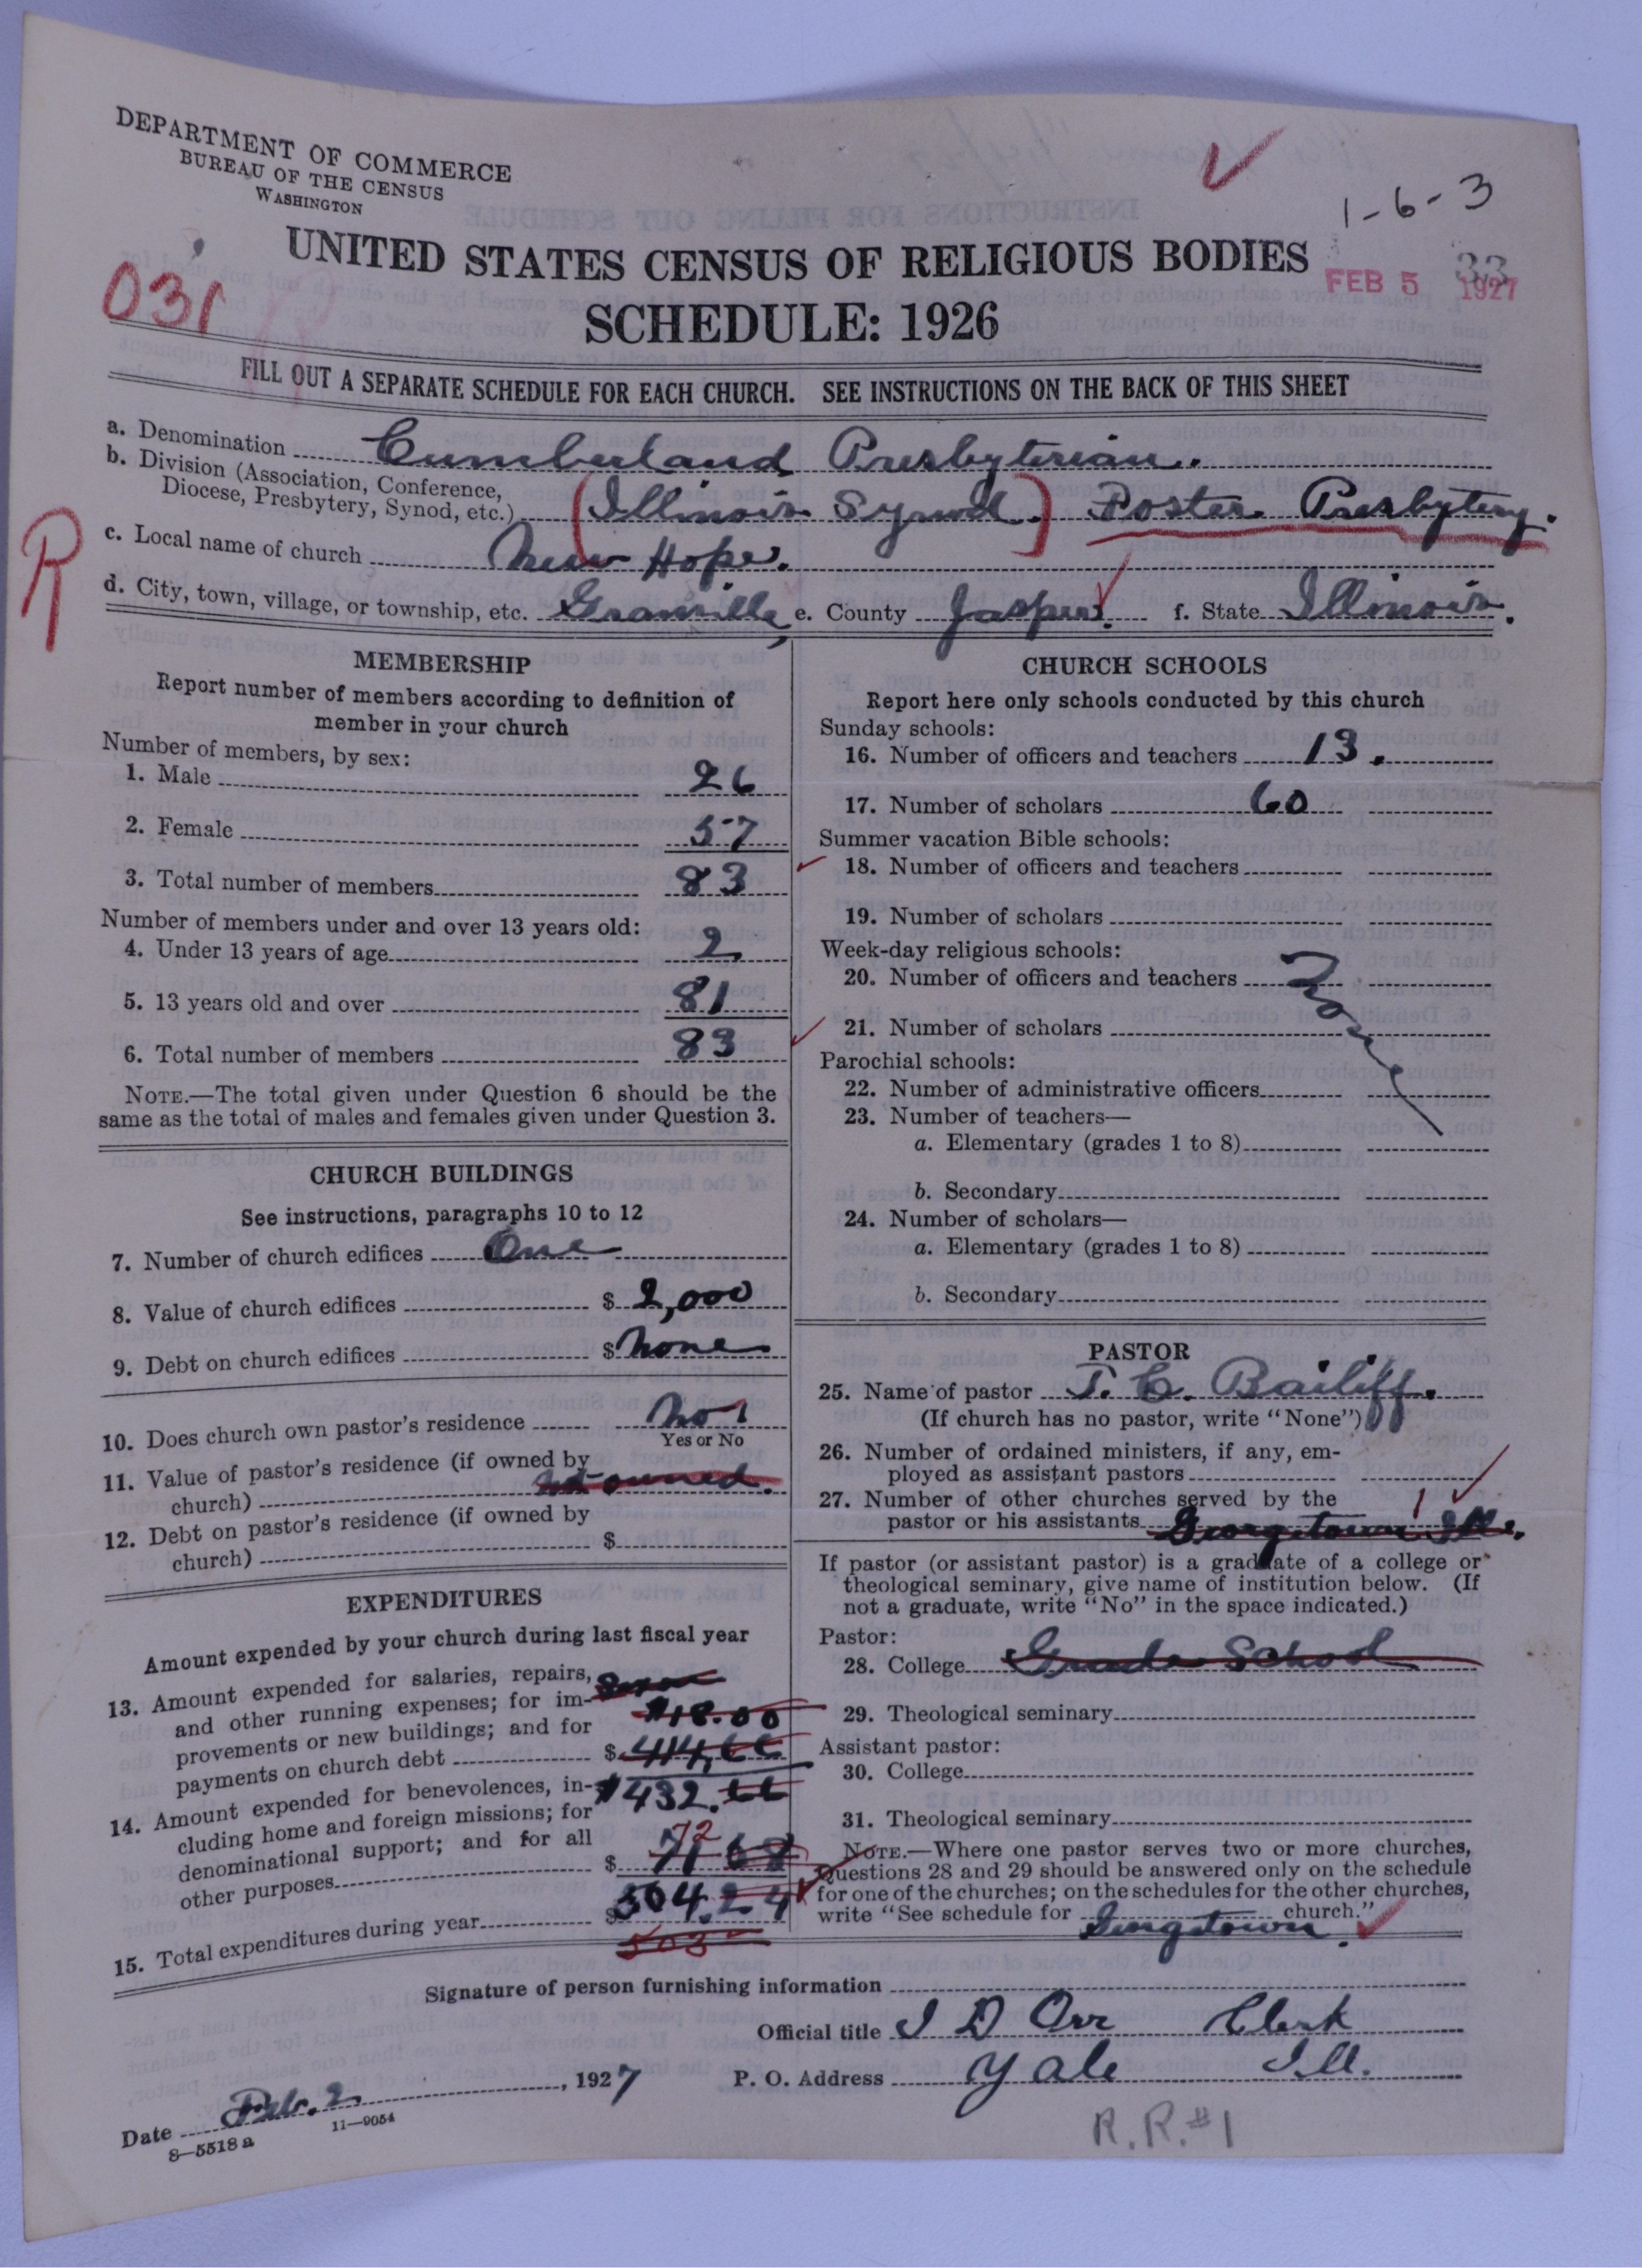 DEPARTMENT OF COMMERCE
BUREAU OF THE CENSUS
WASHINGTON
1-6-3
UNITED STATES CENSUS OF RELIGIOUS BODIES
33
FEB 5 1927
031
SCHEDULE: 1926
FILL OUT A SEPARATE SCHEDULE FOR EACH CHURCH. SEE INSTRUCTIONS ON THE BACK OF THIS SHEET
a. Denomination Cumberland Presbyterian.
b. Division (Association, Conference,
Diocese, Presbytery, Synod, etc.) (Illinois Synod.) Foster Presbytery.
R
c. Local name of church New Hope.
d. City, town, village, or township, etc. Granville, e. County Jasper. f. State Illinois.
MEMBERSHIP
Report number of members according to definition of
member in your church
Number of members, by sex:
1. Male 26
2. Female 57
3. Total number of members 83
Number of members under and over 13 years old:
4. Under 13 years of age 2
5. 13 years old and over 81
6. Total number of members 83
NOTE.—The total given under Question 6 should be the
same as the total of males and females given under Question 3.
CHURCH BUILDINGS
See instructions, paragraphs 10 to 12
7. Number of church edifices One
8. Value of church edifices $ 2,000
9. Debt on church edifices $ none
10. Does church own pastor's residence No
Yes or No
11. Value of pastor's residence (if owned by
church) not owned.
12. Debt on pastor's residence (if owned by
church) $
EXPENDITURES
Amount expended by your church during last fiscal year
13. Amount expended for salaries, repairs,
and other running expenses; for im- $18.00
provements or new buildings; and for
payments on church debt $ 414.66
14. Amount expended for benevolences, in- $432.66
cluding home and foreign missions; for
denominational support; and for all 72
other purposes $ 71 68
15. Total expenditures during year $ 504.24
503
CHURCH SCHOOLS
Report here only schools conducted by this church
Sunday schools:
16. Number of officers and teachers 13.
17. Number of scholars 60
Summer vacation Bible schools:
18. Number of officers and teachers
19. Number of scholars
Week-day religious schools:
20. Number of officers and teachers None
21. Number of scholars
Parochial schools:
22. Number of administrative officers
23. Number of teachers—
a. Elementary (grades 1 to 8)
b. Secondary
24. Number of scholars—
a. Elementary (grades 1 to 8)
b. Secondary
PASTOR
25. Name of pastor T. C. Bailiff.
(If church has no pastor, write "None")
26. Number of ordained ministers, if any, em-
ployed as assistant pastors
27. Number of other churches served by the 1
pastor or his assistants Georgetown Ill.
If pastor (or assistant pastor) is a graduate of a college or
theological seminary, give name of institution below. (If
not a graduate, write "No" in the space indicated.)
Pastor:
28. College Grade School
29. Theological seminary
Assistant pastor:
30. College
31. Theological seminary
NOTE.—Where one pastor serves two or more churches,
Questions 28 and 29 should be answered only on the schedule
for one of the churches; on the schedules for the other churches,
write "See schedule for Georgetown. church."
Signature of person furnishing information
Official title I D Orr Clerk
Date Feb. 2, 1927 P. O. Address Yale Ill.
8—5518 a 11—9054
R.R.#1